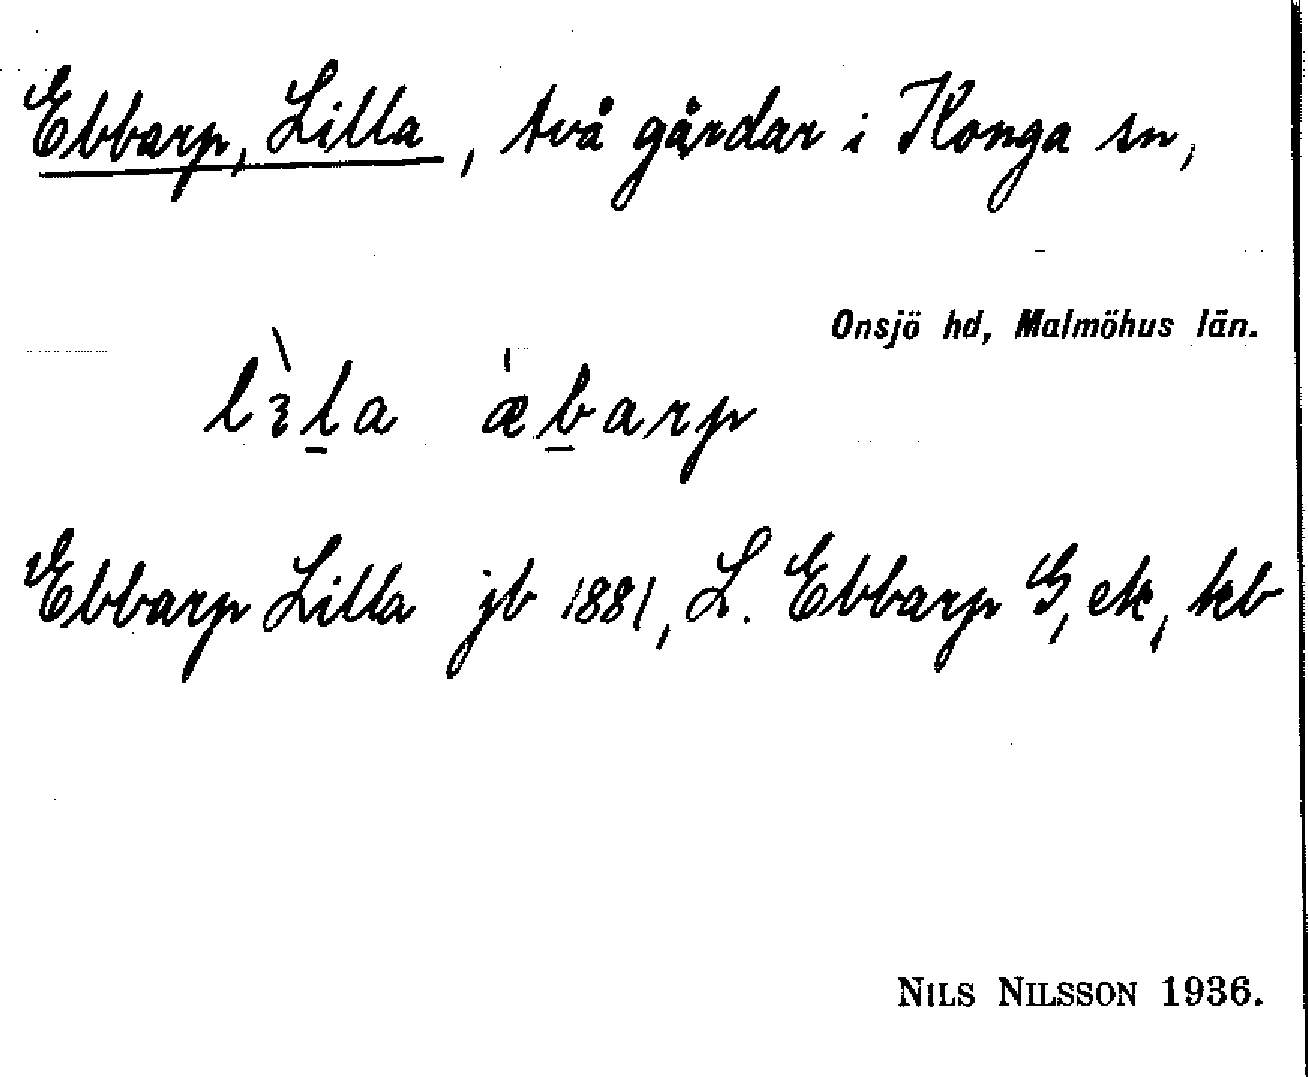 Ebbarp, Lilla, två gårdar i Konga sn,
Onsjö hd, Malmöhus län.
lɜ̀l̲a æ̍b̲arp
Ebbarp Lilla jb 1881, L. Ebbarp G, ek, kb
NILS NILSSON 1936.